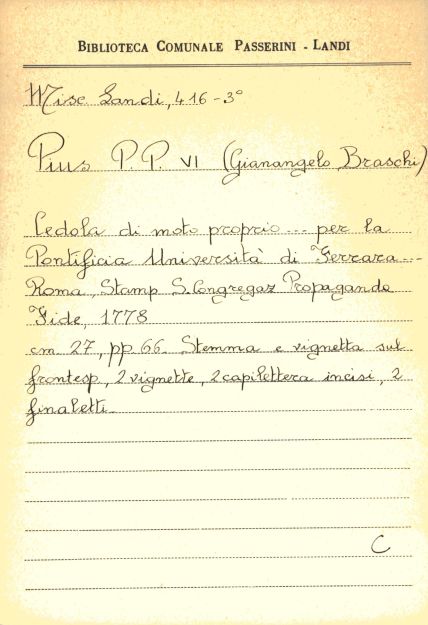 BIBLIOTECA COMUNALE PASSERINI - LANDI
Misc. Landi, 416-3°
Pius P.P. VI (Gianangelo Braschi)
Cedola di moto proprio... per la
Pontificia Università di Ferrara...
Roma, Stamp. S. Congregaz Propaganda
Fide, 1778
cm. 27, pp. 66. Stemma e vignetta sul
frontesp., 2 vignette, 2 capilettera incisi, 2
finaletti.
C